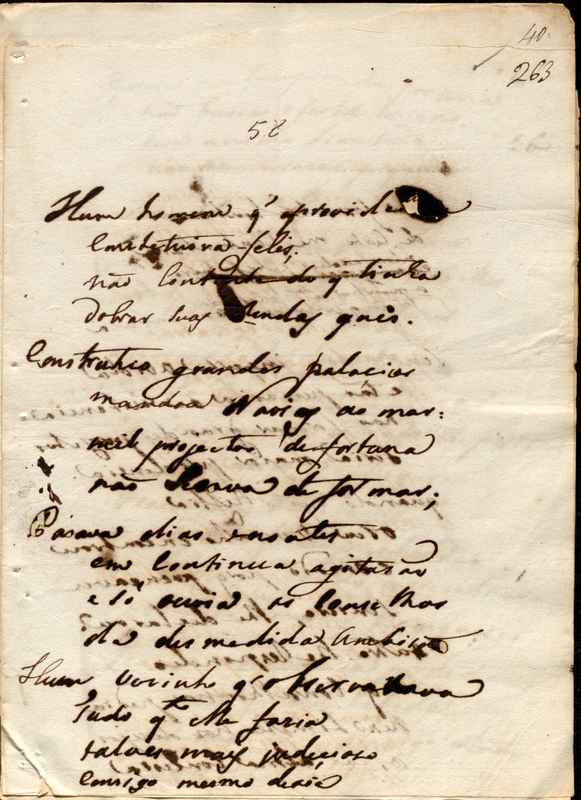 40.
263
58
Hum homem q' a provide
Constetuira felis,
não Contente do q' tinha
dobrar suas Rendas quis.
Construhio grandes palacios
mandou Navios ao mar:
mil projectos de fortuna
não Sesava de formar;
Pasava dias e noutes
em Continua agitasão
e só ouvia os Conselhos
da desmedida Ambisão
Hum Vecinho q' observava
tudo q^to elle fazia
talves mais judicioso
Consigo mesmo dezia